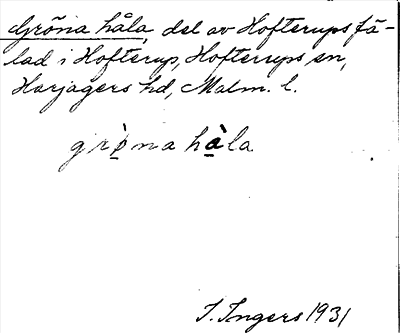 Gröna håla del av Hofterups fä-
lad i Hofterup, Hofterups sn,
Harjagers hd, Malm. l.
grò̱na hà̱la
I. Ingers 1931